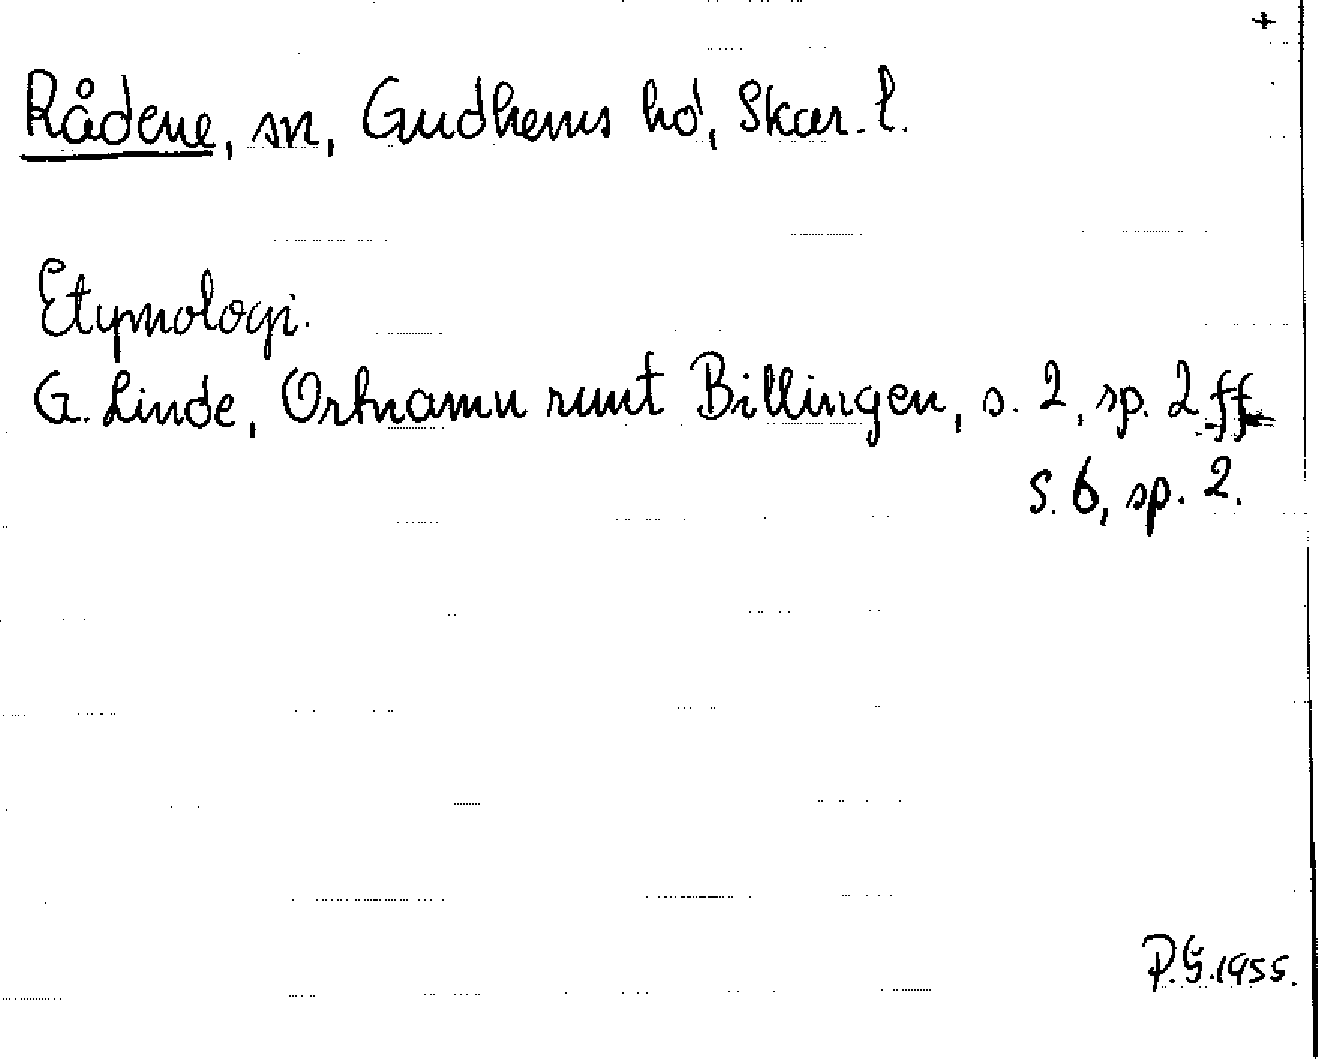 +
Rådene, sn, Gudhems hd, Skar. l.
Etymologi.
G. Linde, Ortnamn runt Billingen, s. 2, sp. 2 ff
S. 6, sp. 2.
P.G. 1955.